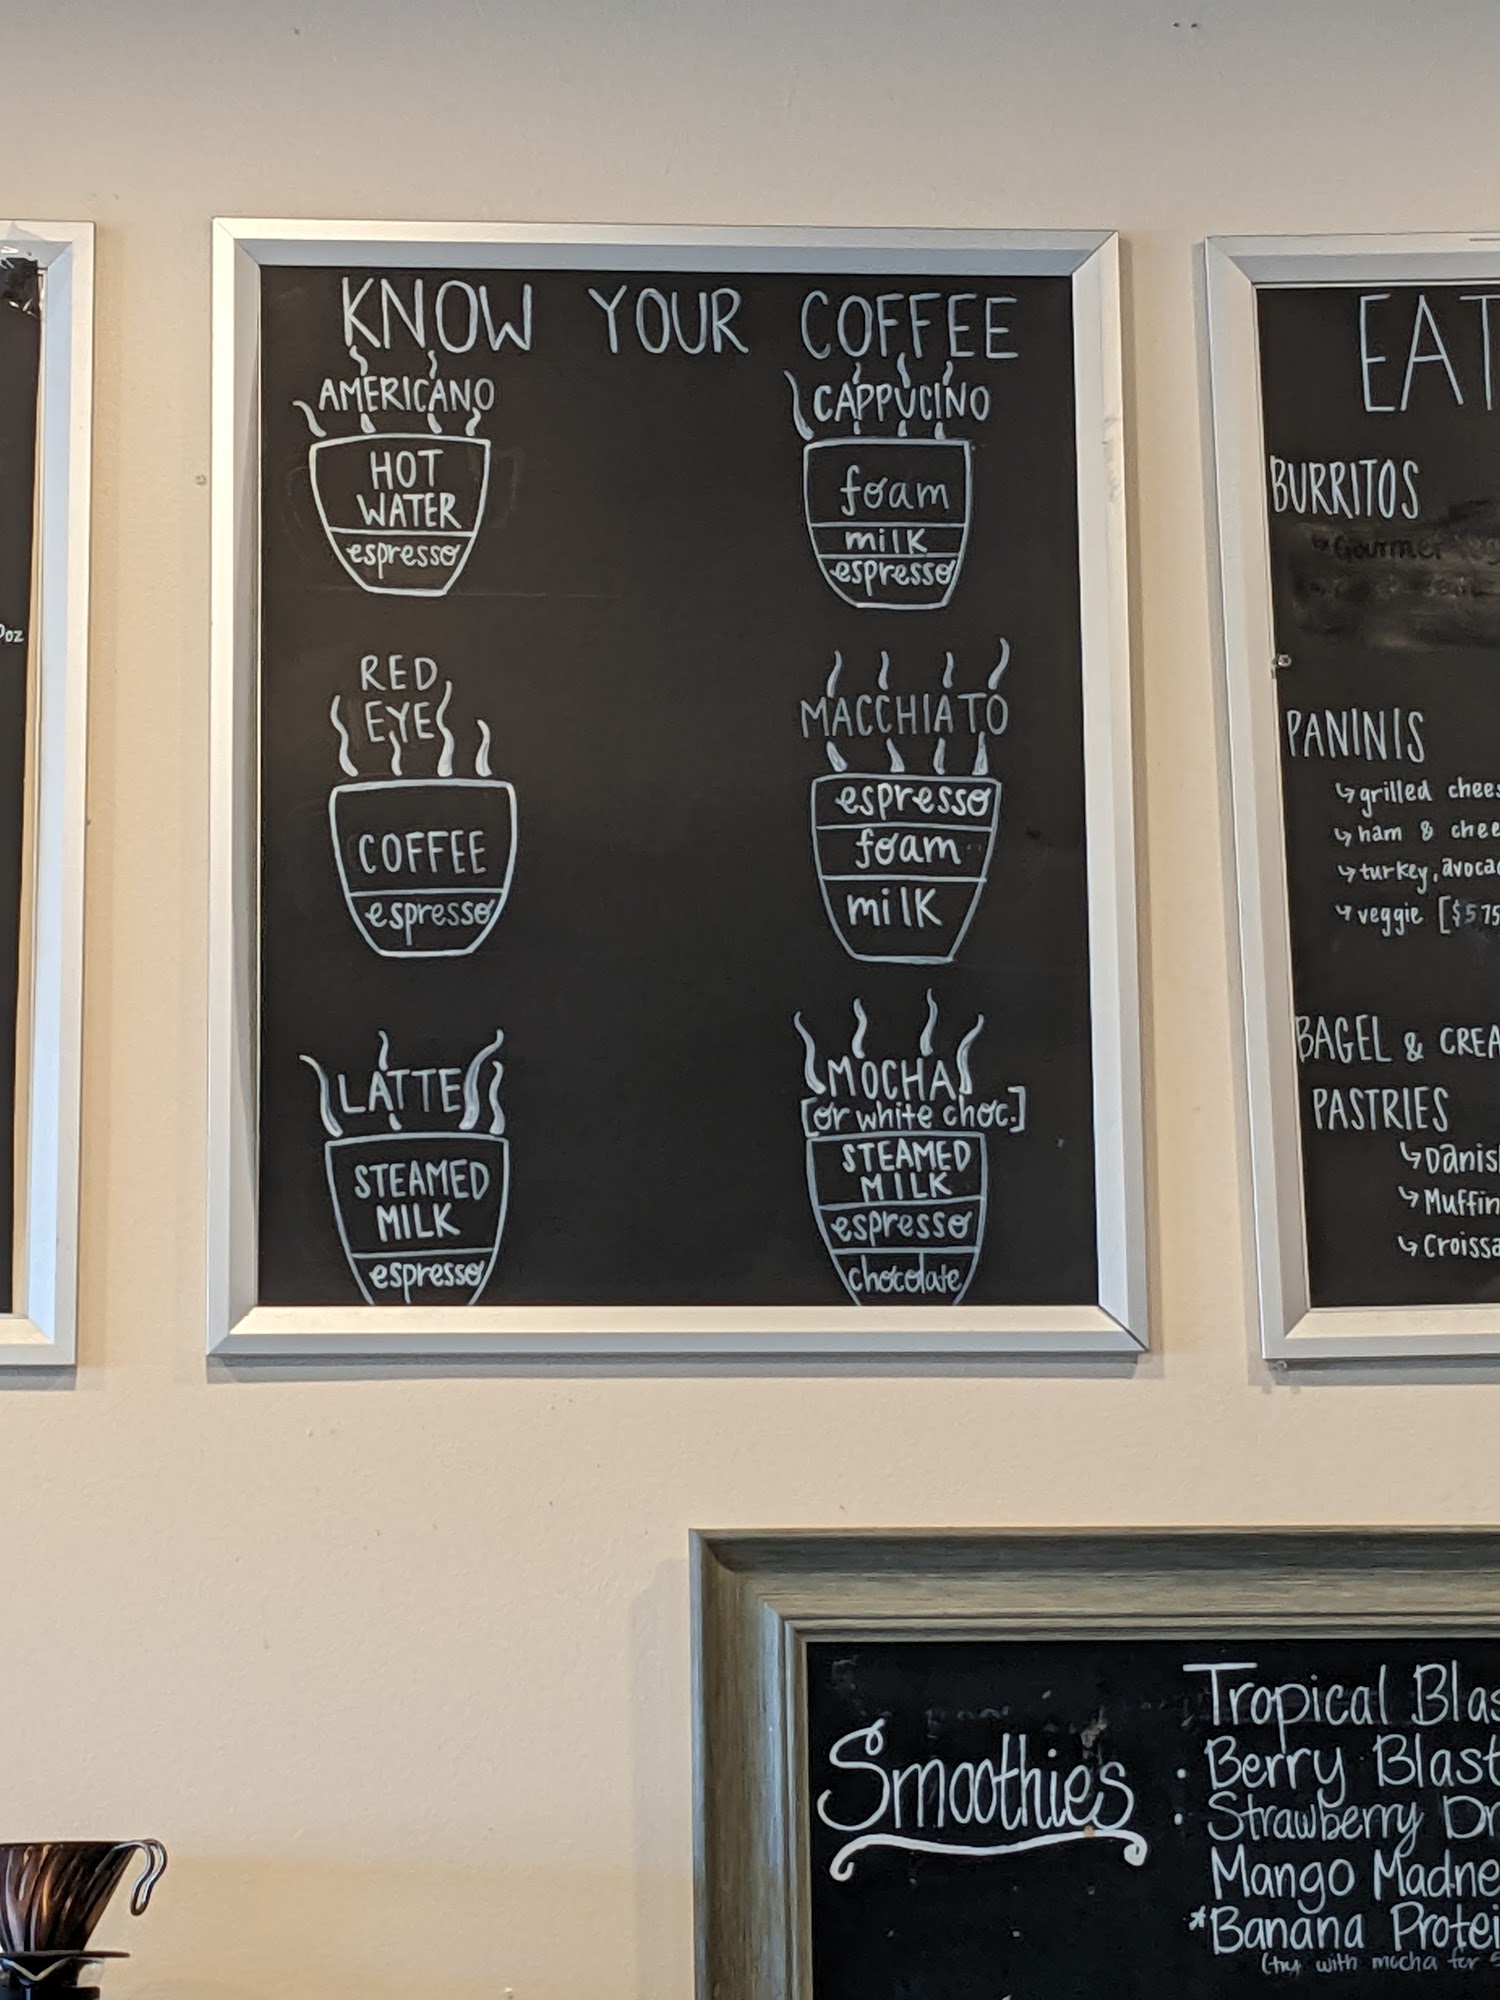 KNOW YOUR COFFEE
AMERICANO
HOT
WATER
espresso
CAPPUCINO
foam
milk
espresso
RED
EYE
COFFEE
espresso
MACCHIATO
espresso
foam
milk
LATTE
STEAMED
MILK
espresso
MOCHA
[or white choc.]
STEAMED
MILK
espresso
chocolate
oz
EAT
BURRITOS
Gourmet
PANINIS
↳ grilled chees
↳ ham & chee
↳ turkey, avoca
↳ veggie [$5.75
BAGEL & CREA
PASTRIES
↳ Danis
↳ Muffin
↳ Croissa
Smoothies
Tropical Blas
· Berry Blast
· Strawberry Dr
Mango Madne
*Banana Protei
(try with mocha for